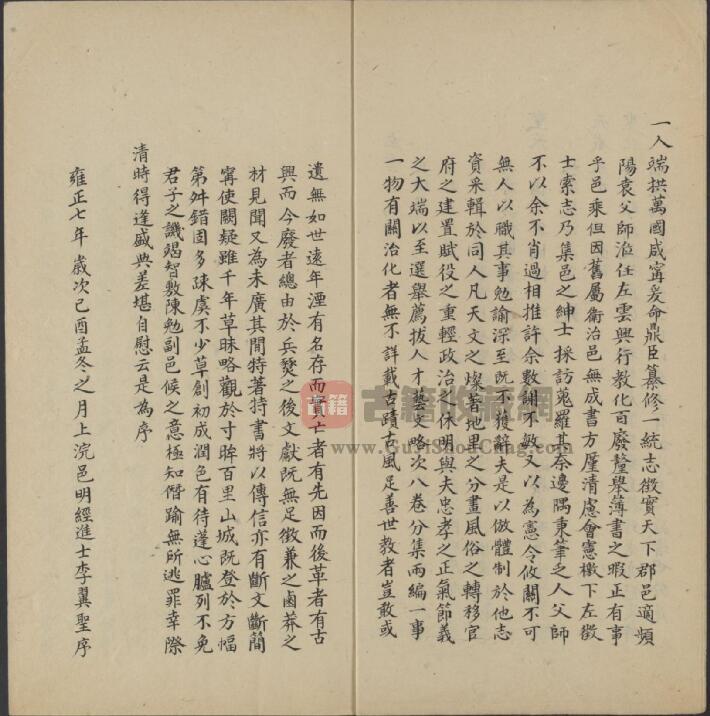 一人端拱萬國咸寧爰命鼎臣纂修一統志徵實天下郡邑適頻
陽袁父師涖任左雲興行教化百廢釐舉薄書之暇正有事
乎邑乘但因舊屬衛治邑無成書方厪清慮會憲檄下左徵
士索志乃集邑之紳士採訪蒐羅其奈邊隅東筆乏人父師
不以余不肖過相推許余數謝不敏又以為憲令攸關不可
無人以職其事勉諭深至既不獲辭夫是以倣體制於他志
資采輯於同人凡天文之燦著地里之分畫風俗之轉移官
府之建置賦役之重輕政治之休明與夫忠孝之正氣節義
之大端以至選舉薦拔人才藝文略次八卷分集兩編一事
一物有關治化者無不詳載古蹟古風足善世教者豈敢或
遺無如世遠年湮有名存而實亡者有先因而後革者有古
興而今廢者總由於兵燹之後文獻既無足徵兼之鹵莽之
材見聞又為未廣其閒特著持書將以傳信亦有斷文斷簡
寧使闕疑雖千年草昧略觀於寸眸百里山城既登於方幅
第舛錯固多疎虞不少草創初成潤色有待蓬心臚列不免
君子之譏竭智敷陳勉副邑侯之意極知僭踰無所逃罪幸際
清時得逢盛典差堪自慰云是為序
雍正七年歲次己酉孟冬之月上浣邑明經進士李翼聖序
古籍
古籍收藏網
www.GuJiShouCang.com